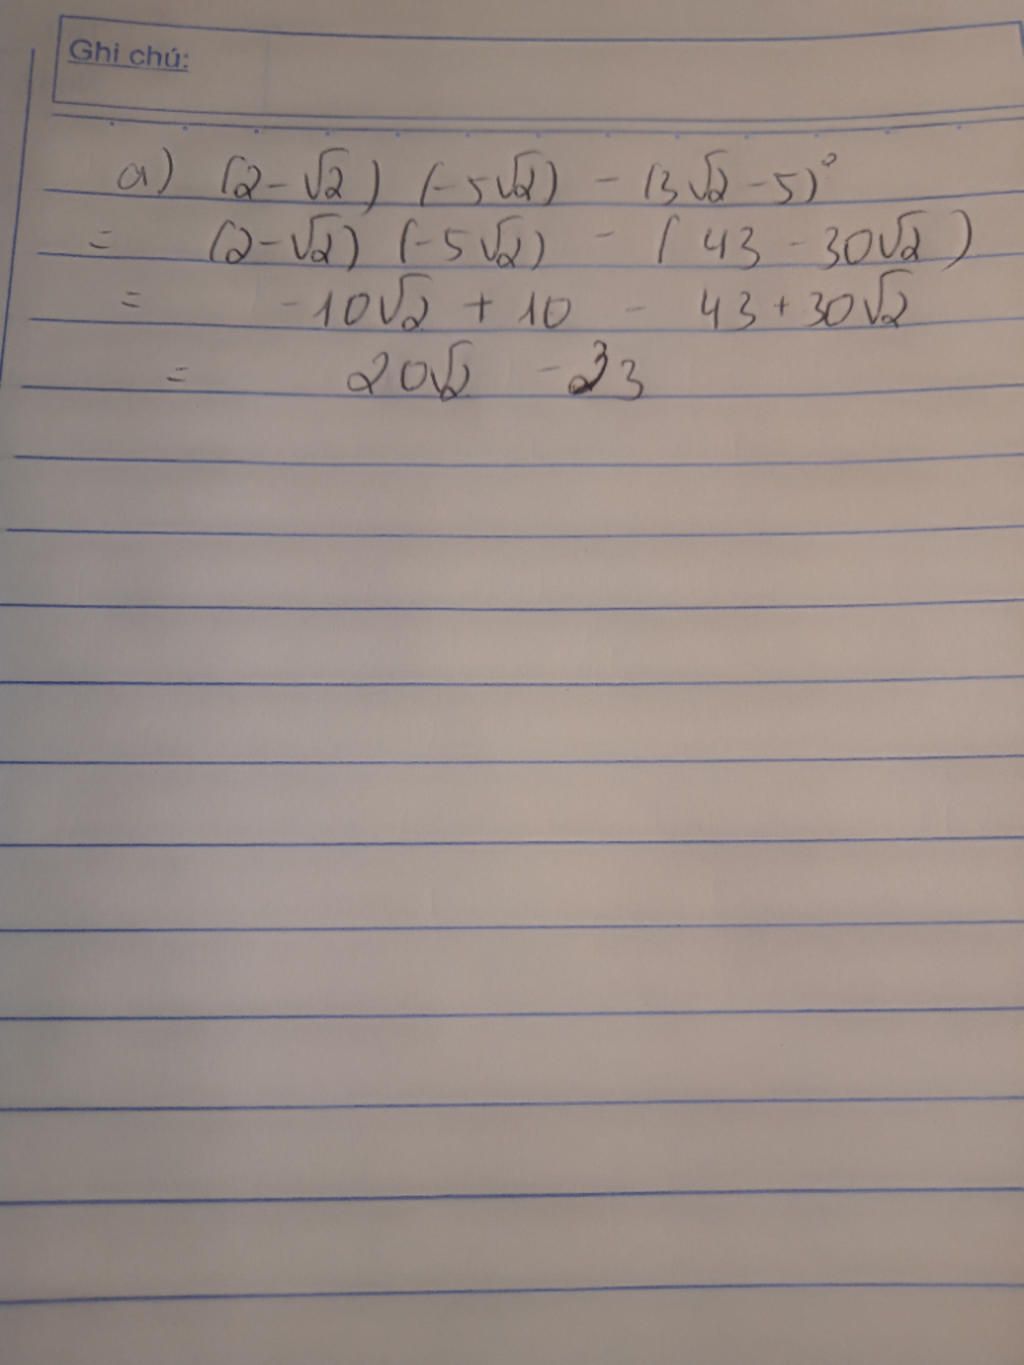 Ghi chú:
a) (2-√2) (-5√2) - (3√2-5)²
= (2-√2) (-5√2) - (43 - 30√2)
= -10√2 + 10 - 43 + 30√2
= 20√2 - 33